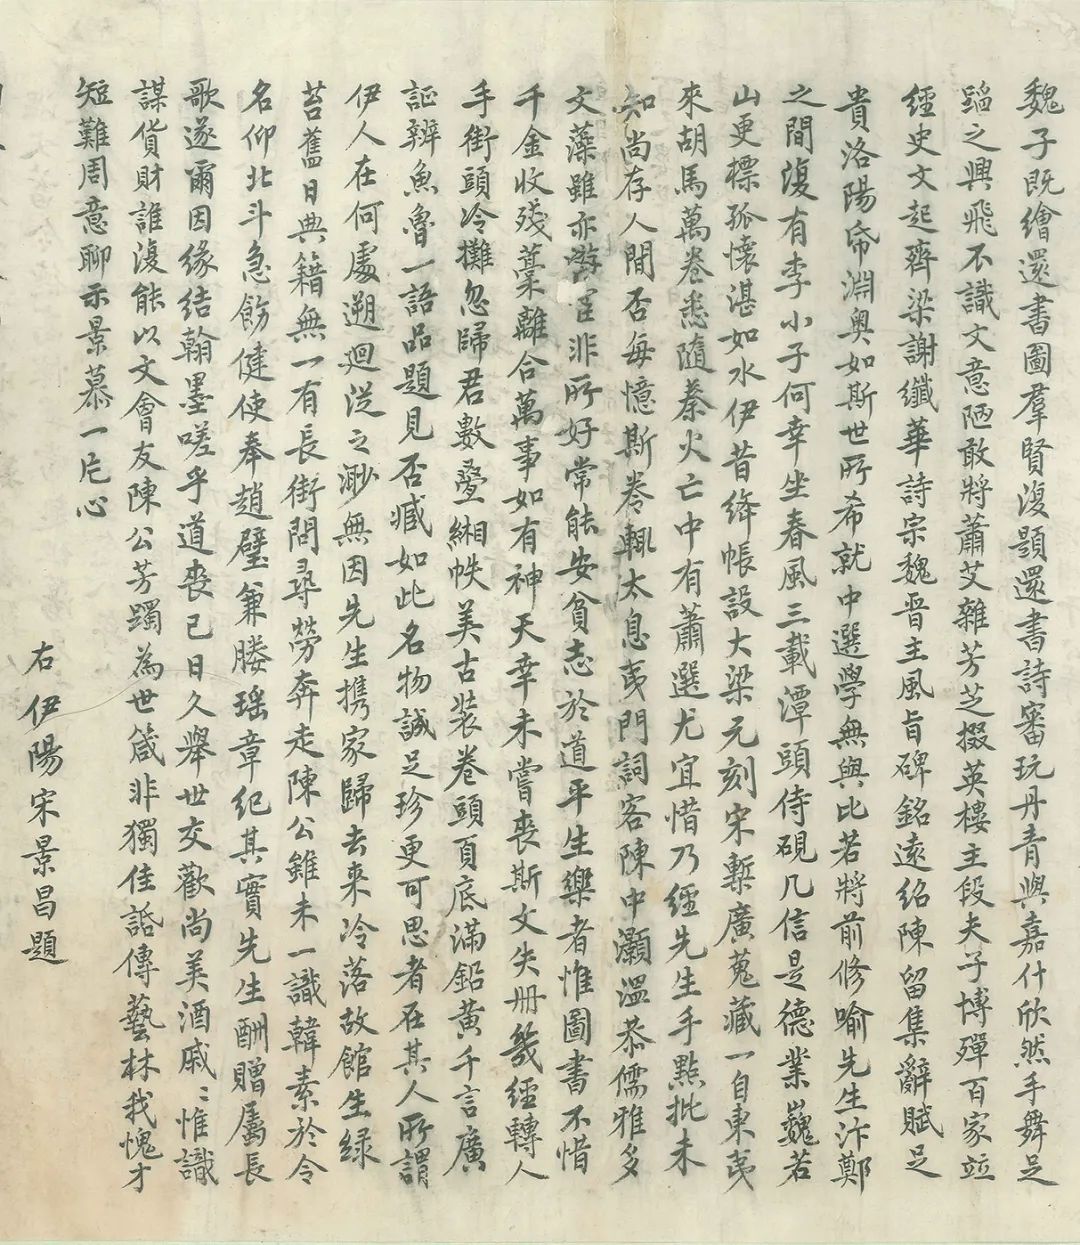 魏子既繪還書圖羣賢復題還書詩審玩丹青與嘉什欣然手舞足
蹈之興飛不識文意陋敢將蕭艾雜芳芝掇英樓主段夫子博殫百家竝
經史文起齊梁謝纖華詩宗魏晋主風旨碑銘遠紹陳留集辭賦足
貴洛陽帋淵奥如斯世所希就中選學無與比若將前修喻先生汴鄭
之間復有李小子何幸坐春風三載潭頭侍硯几信是德業巍若
山更標孤懷湛如水伊昔絳帳設大梁元刻宋槧廣蒐藏一自東夷
來胡馬萬卷悉隨秦火亡中有蕭選尤宜惜乃經先生手點批未
知尚存人間否每憶斯卷輒太息夷門詞客陳中灝溫恭儒雅多
文藻雖亦游宦非所好常能安貧志於道平生樂者惟圖書不惜
千金收殘藁離合萬事如有神天幸未嘗喪斯文失册幾經轉人
手街頭冷攤忽歸君數疊緗帙美古裝卷頭頁底滿鉛黄千言廣
証辨魚魯一語品題見否臧如此名物誠足珍更可思者在其人所謂
伊人在何處遡迴從之渺無因先生携家歸去來冷落故館生緑
苔舊日典籍無一有長街問尋勞奔走陳公雖未一識韓素於令
名仰北斗急飭健使奉趙璧兼媵瑶章紀其實先生酬贈屬長
歌遂爾因緣結翰墨嗟乎道喪已日久舉世交歡尚美酒戚〻惟識
謀貨財誰復能以文會友陳公芳躅為世箴非獨佳話傳藝林我愧才
短難周意聊示景慕一片心
右伊陽宋景昌題